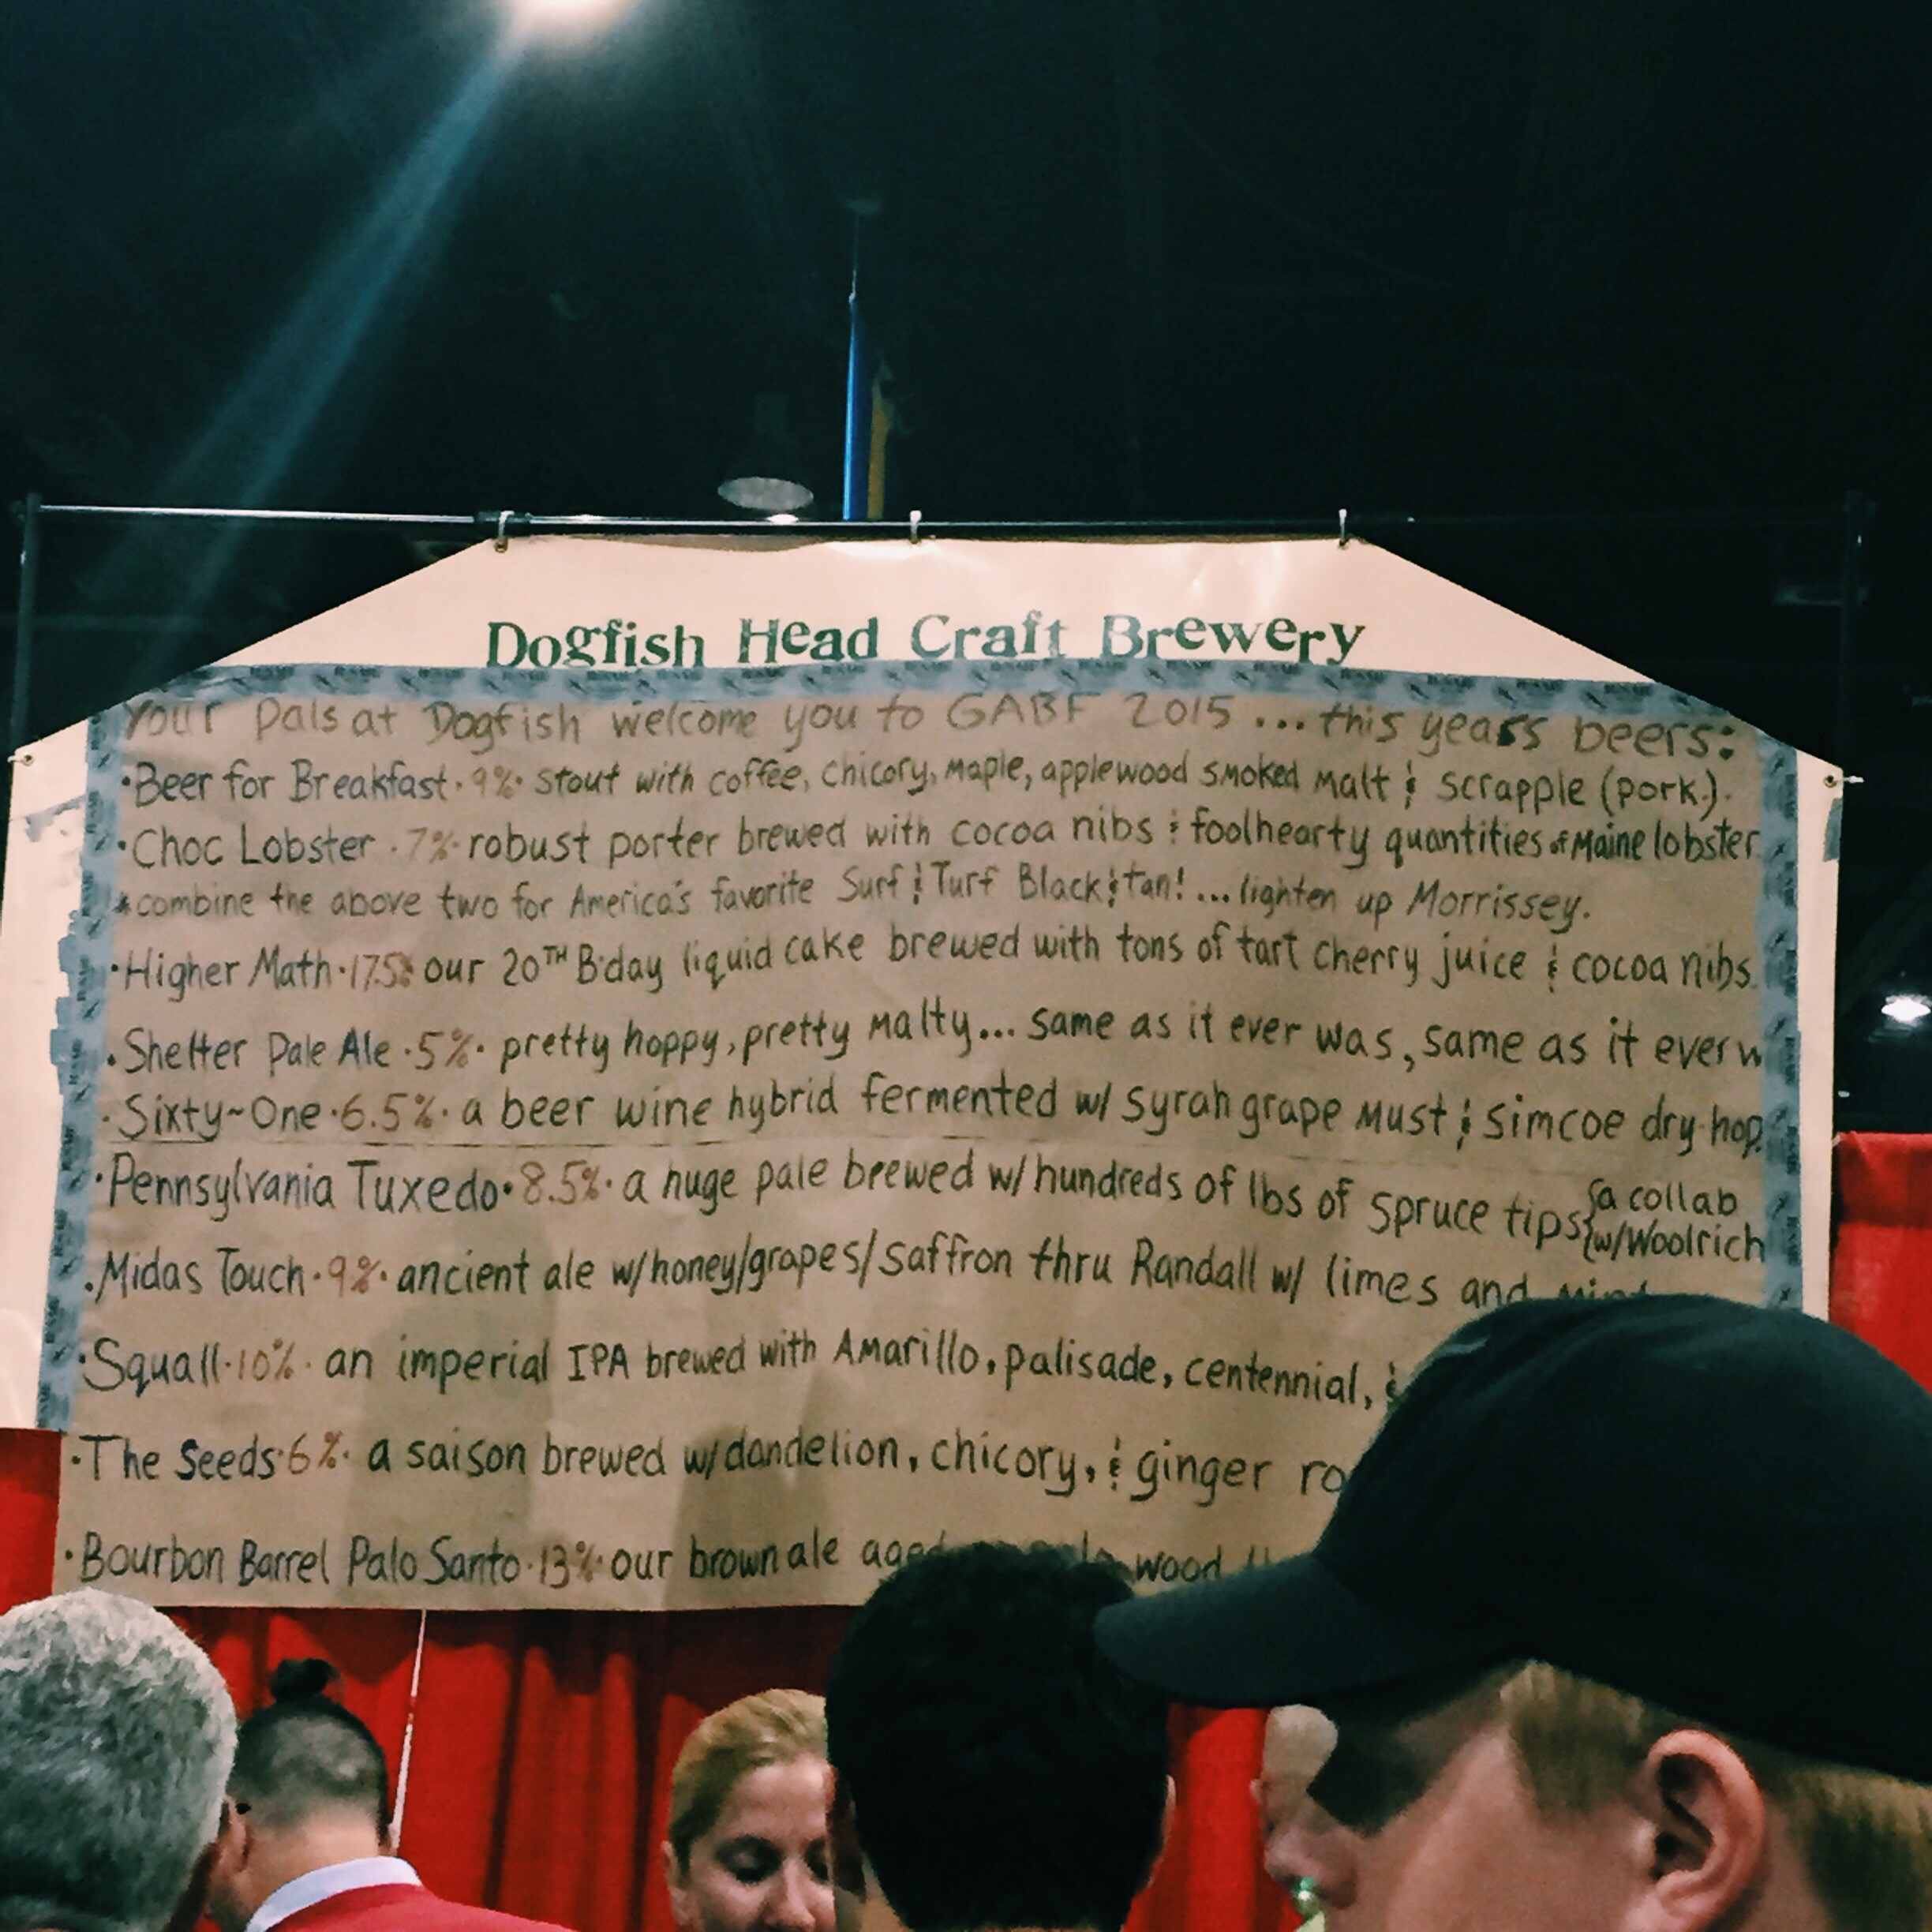 Dogfish Head Craft Brewery
Your pals at Dogfish welcome you to GABF 2015 ... this years beers:
·Beer for Breakfast · 9% · stout with coffee, chicory, maple, applewood smoked malt & scrapple (pork).
·Choc Lobster · 7% · robust porter brewed with cocoa nibs & foolhearty quantities of Maine lobster
*combine the above two for America's favorite Surf & Turf Black & tan! ... lighten up Morrissey.
·Higher Math · 17.5% our 20TH B'day liquid cake brewed with tons of tart cherry juice & cocoa nibs
·Shelter Pale Ale · 5% · pretty hoppy, pretty malty... same as it ever was, same as it ever w
·Sixty~One · 6.5% · a beer wine hybrid fermented w/ syrah grape must & simcoe dry-hop
·Pennsylvania Tuxedo · 8.5% · a huge pale brewed w/ hundreds of lbs of spruce tips {a collab
w/Woolrich
·Midas Touch · 9% · ancient ale w/honey/grapes/saffron thru Randall w/ limes and
·Squall · 10% · an imperial IPA brewed with Amarillo, palisade, centennial, &
·The Seeds · 6% · a saison brewed w/dandelion, chicory, & ginger ro
·Bourbon Barrel Palo Santo · 13% · our brown ale aged wood